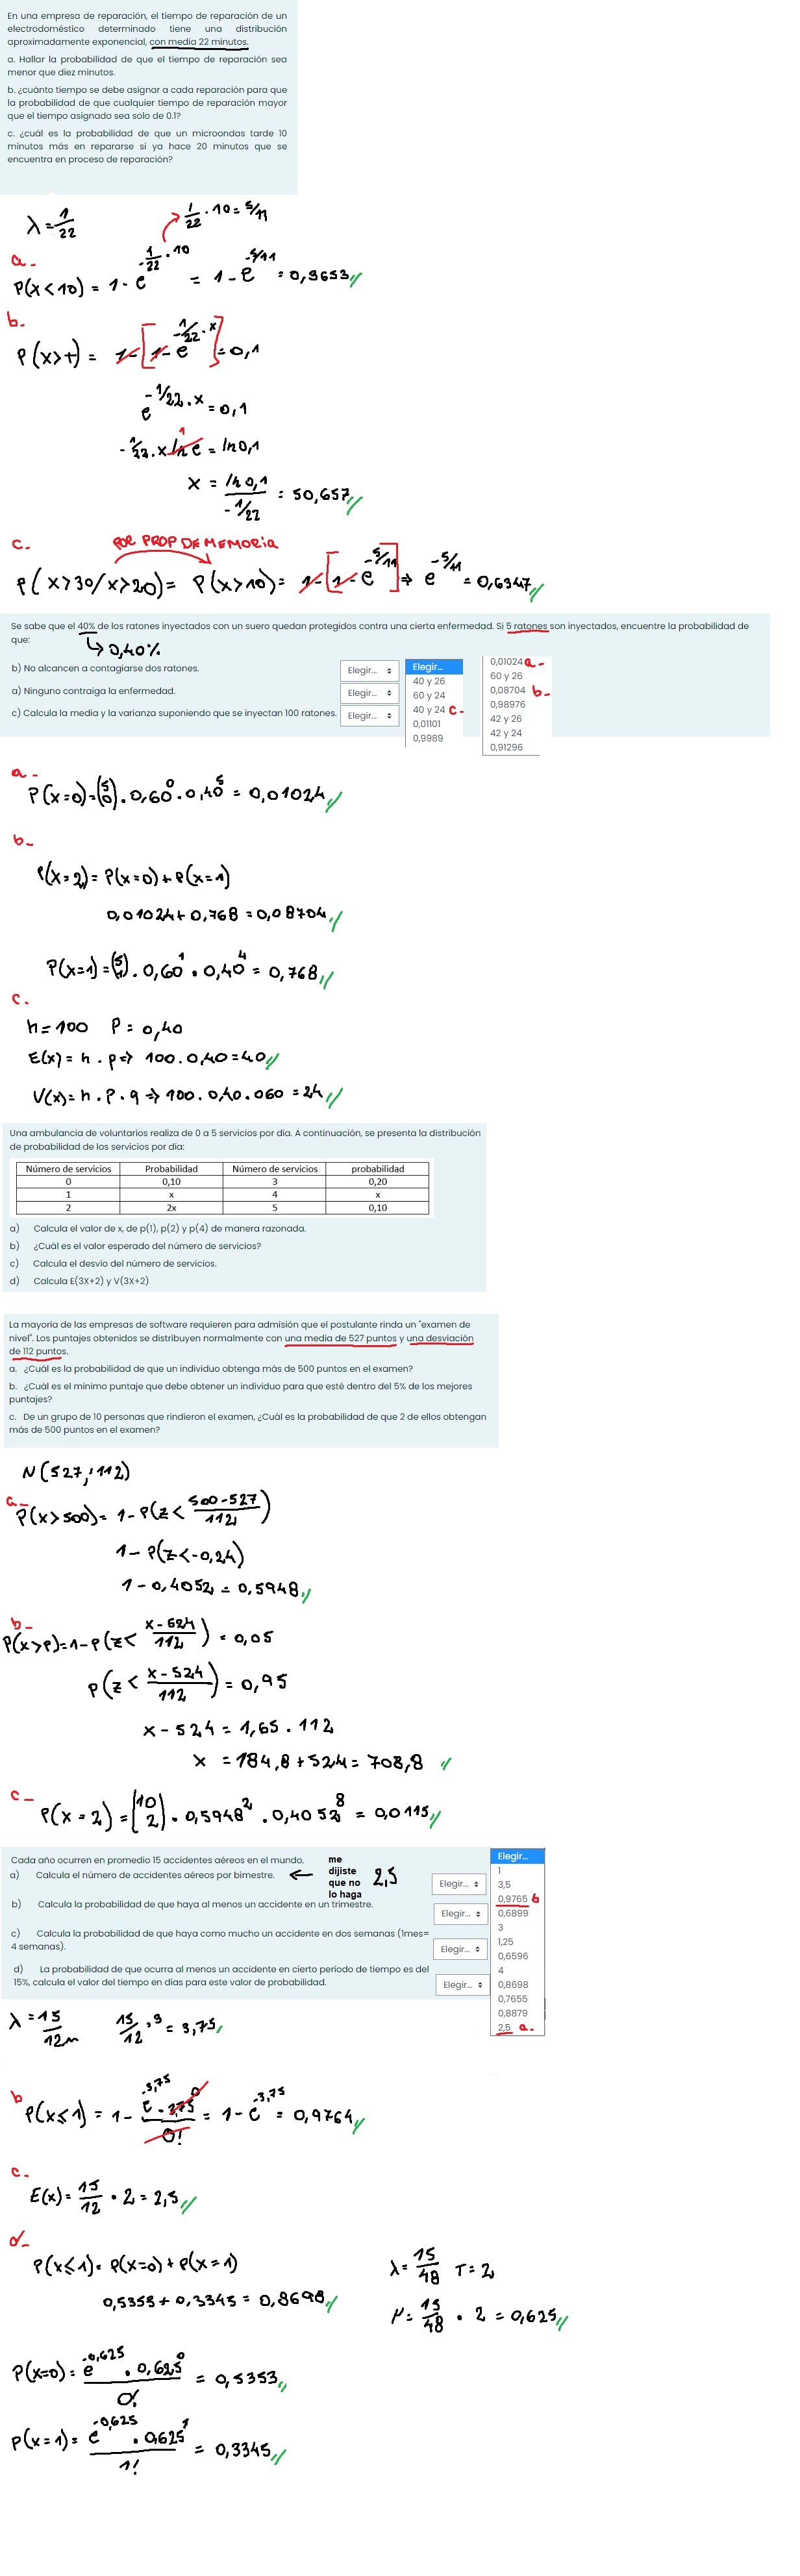 En una empresa de reparación, el tiempo de reparación de un
electrodoméstico determinado tiene una distribución
aproximadamente exponencial, con media 22 minutos.
a. Hallar la probabilidad de que el tiempo de reparación sea
menor que diez minutos.
b. ¿cuánto tiempo se debe asignar a cada reparación para que
la probabilidad de que cualquier tiempo de reparación mayor
que el tiempo asignado sea solo de 0.1?
c. ¿cuál es la probabilidad de que un microondas tarde 10
minutos más en repararse si ya hace 20 minutos que se
encuentra en proceso de reparación?
λ = 1/22
1/22 . 10 = 5/11
a -
P(x < 10) = 1 - e^(-1/22 . 10) = 1 - e^(-5/11) = 0,3653
b.
P(x > t) = 1 - [1 - e^(-1/22 . x)] = 0,1
e^(-1/22 . x) = 0,1
- 1/22 . x ln e = ln 0,1
1
x = ln 0,1 / -1/22 = 50,657
c.
POR PROP DE MEMORIA
P(x > 30 / x > 20) = P(x > 10) = 1 - [1 - e^(-5/11)] ⇒ e^(-5/11) = 0,6347
Se sabe que el 40% de los ratones inyectados con un suero quedan protegidos contra una cierta enfermedad. Si 5 ratones son inyectados, encuentre la probabilidad de
que:
0,40%
b) No alcancen a contagiarse dos ratones.
Elegir...
a) Ninguno contraiga la enfermedad.
Elegir...
c) Calcula la media y la varianza suponiendo que se inyectan 100 ratones.
Elegir...
Elegir...
40 y 26
60 y 24
40 y 24 c -
0,01101
0,9989
0,01024 a -
60 y 26
0,08704 b -
0,98976
42 y 26
42 y 24
0,91296
a -
P(x = 0) = (5 0) . 0,60^0 . 0,40^5 = 0,01024
b -
P(x = 2) = P(x = 0) + P(x = 1)
0,01024 + 0,768 = 0,08704
P(x = 1) = (5 1) . 0,60^1 . 0,40^4 = 0,768
c -
n = 100 P = 0,40
E(x) = n . p ⇒ 100 . 0,40 = 40
V(x) = n . P . q ⇒ 100 . 0,40 . 060 = 24
Una ambulancia de voluntarios realiza de 0 a 5 servicios por día. A continuación, se presenta la distribución
de probabilidad de los servicios por día:
Número de servicios Probabilidad Número de servicios probabilidad
0 0,10 3 0,20
1 x 4 x
2 2x 5 0,10
a) Calcula el valor de x, de p(1), p(2) y p(4) de manera razonada.
b) ¿Cuál es el valor esperado del número de servicios?
c) Calcula el desvío del número de servicios.
d) Calcula E(3X+2) y V(3X+2)
La mayoría de las empresas de software requieren para admisión que el postulante rinda un "examen de
nivel". Los puntajes obtenidos se distribuyen normalmente con una media de 527 puntos y una desviación
de 112 puntos.
a. ¿Cuál es la probabilidad de que un individuo obtenga más de 500 puntos en el examen?
b. ¿Cuál es el mínimo puntaje que debe obtener un individuo para que esté dentro del 5% de los mejores
puntajes?
c. De un grupo de 10 personas que rindieron el examen, ¿Cuál es la probabilidad de que 2 de ellos obtengan
más de 500 puntos en el examen?
N(527, 112)
a -
P(x > 500) = 1 - P(z < 500 - 527 / 112)
1 - P(z < -0,24)
1 - 0,4052 = 0,5948
b -
P(x > P) = 1 - P(z < x - 524 / 112) = 0,05
P(z < x - 524 / 112) = 0,95
x - 524 = 1,65 . 112
x = 184,8 + 524 = 708,8
c -
P(x = 2) = (10 2) . 0,5948^2 . 0,4052^8 = 0,0115
Cada año ocurren en promedio 15 accidentes aéreos en el mundo.
a) Calcula el número de accidentes aéreos por bimestre.
me
dijiste
que no
lo haga
2,5
Elegir...
b) Calcula la probabilidad de que haya al menos un accidente en un trimestre.
Elegir...
c) Calcula la probabilidad de que haya como mucho un accidente en dos semanas (1mes=
4 semanas).
Elegir...
d) La probabilidad de que ocurra al menos un accidente en cierto período de tiempo es del
15%, calcula el valor del tiempo en días para este valor de probabilidad.
Elegir...
Elegir...
1
3,5
0,9765 b
0,6899
3
1,25
0,6596
4
0,8698
0,7655
0,8879
2,5 a -
λ = 15/12m 15/12 . 3 = 3,75
b
P(x ≤ 1) = 1 - e^(-3,75) . 3,75^0 / 0! = 1 - e^(-3,75) = 0,9764
c.
E(x) = 15/12 . 2 = 2,5
d -
P(x ≤ 1) = P(x = 0) + P(x = 1)
0,5353 + 0,3345 = 0,8698
λ = 15/48 T = 2
μ = 15/48 . 2 = 0,625
P(x = 0) = e^(-0,625) . 0,625^0 / 0! = 0,5353
P(x = 1) = e^(-0,625) . 0,625^1 / 1! = 0,3345